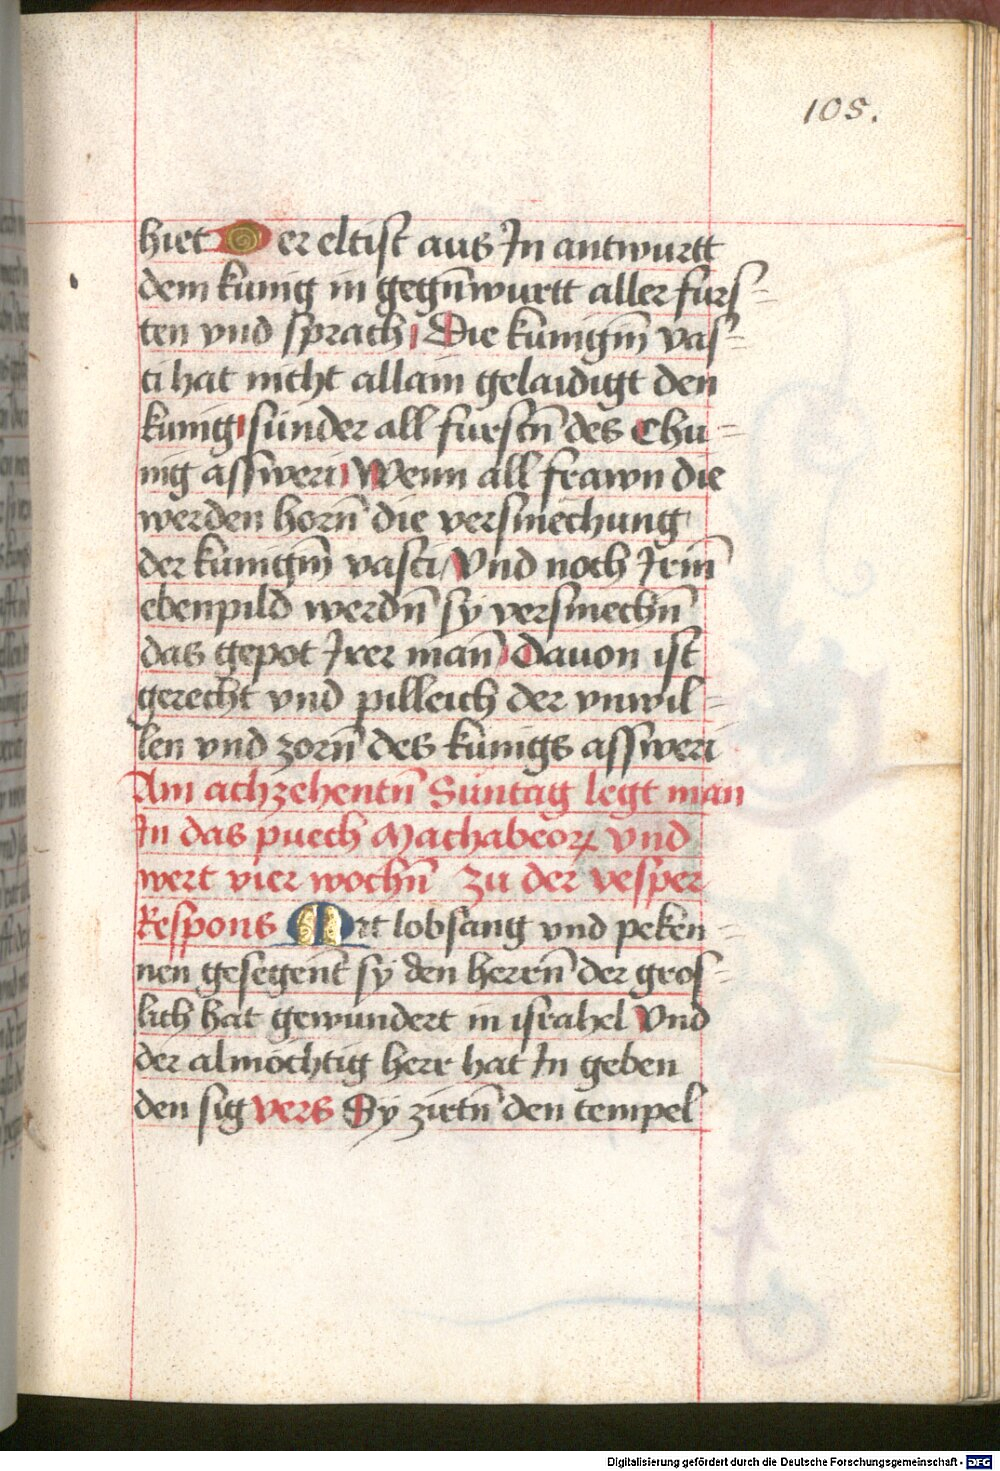 105.
hiet Der eltist aus In antwurtt
dem kunig in gegn̄wurtt aller furs=
ten vnd sprach Die kunigin̄ vas=
ti hat nicht allain gelaidigt den
kunig sunder all furstn̄ des Chu=
nig assweri Wenn all frawn die
werden horn̄ die versmechung
der kunigin̄ vasti Vnd noch Irem̄
ebenpild werdn̄ sy versmechn̄
das gepot Irer man̄ Dauon ist
gerecht vnd pilleich der vnwil=
len vnd zorn̄ des kunigs assweri
Am achzehentn̄ Suntag legt man
In das puech Machabeoꝝ vnd
wert vier wochn̄ zu der vesper
Respons Mit lobsang vnd peken=
nen gesegent̄ sy den herrn̄ der gros=
lich hat gewundert in israhel Vnd
der almochtig herr hat In geben
den sig vers Sy zirtn̄ den tempel
Digitalisierung gefördert durch die Deutsche Forschungsgemeinschaft - DFG